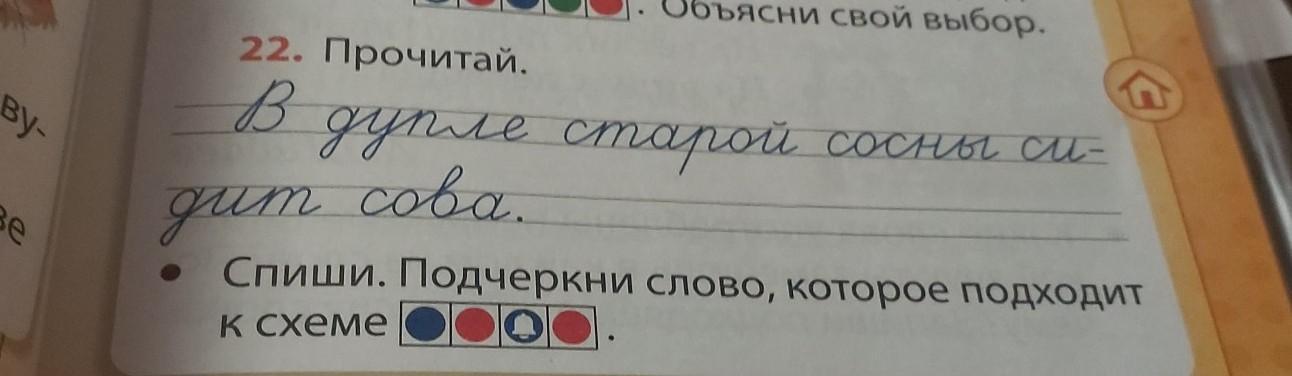 . Объясни свой выбор.
22. Прочитай.
В дупле старой сосны си-
дит сова.
• Спиши. Подчеркни слово, которое подходит
к схеме .
ву-